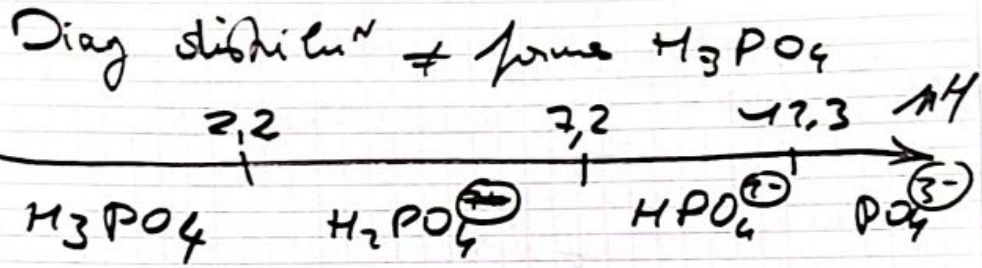 Diag distribuᴺ ≠ formes H₃PO₄
2,2 7,2 12,3 pH
H₃PO₄ H₂PO₄⁻ HPO₄²⁻ PO₄³⁻